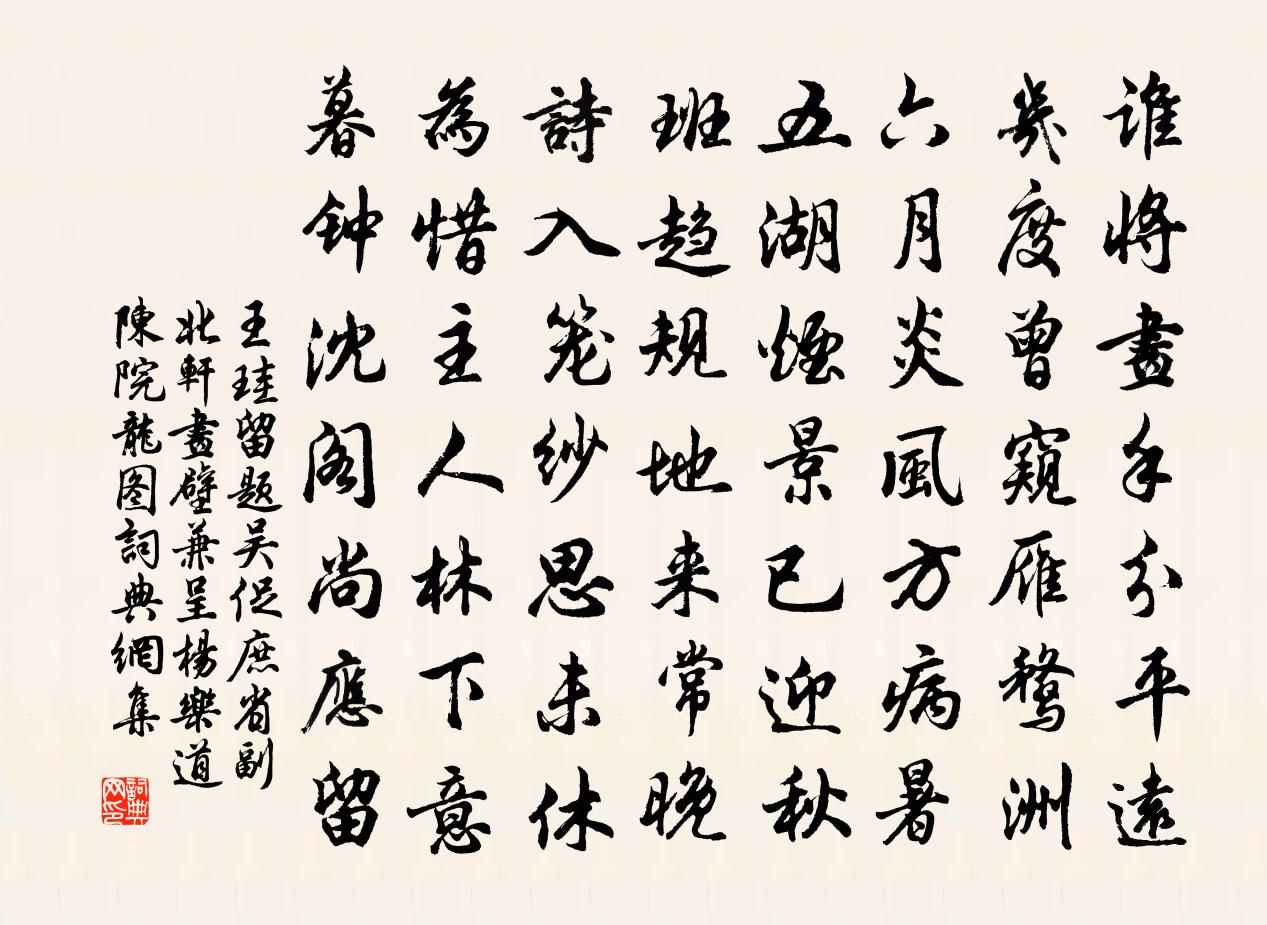 谁將畫手分平遠
幾度曾窺雁鶩洲
六月炎風方病暑
五湖煙景已迎秋
班趨規地来常晚
詩入笼纱思未休
為惜主人林下意
暮钟沈阁尚應留
王珪留题吴促庶省副
北軒畫壁兼呈楊樂道
陳院龍图詞典網集
詞典网印